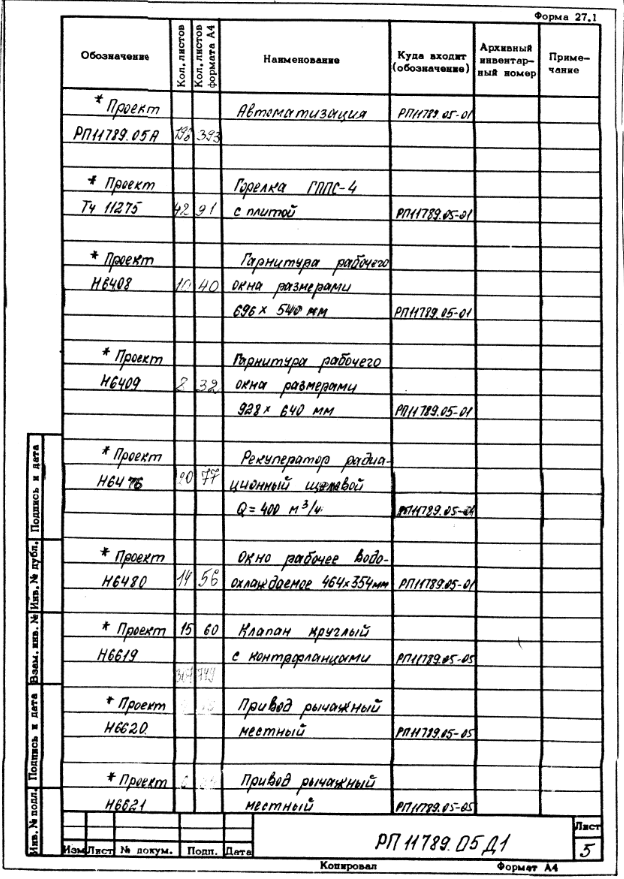 Форма 27.1
Обозначение | Кол. листов | Кол. листов формата А4 | Наименование | Куда входит (обозначение) | Архивный инвентарный номер | Примечание
* Проект Автоматизация РП11789.05-01
РП11789.05А 393
* Проект Горелка ГППС-4
ТЧ 11275 42 91 с плитой РП11789.05-01
* Проект Гарнитура рабочего
Н6408 10 40 окна размерами
696 × 540 мм РП11789.05-01
* Проект Гарнитура рабочего
Н6409 32 окна размерами
928 × 640 мм РП11789.05-01
* Проект Рекуператор радиа-
Н6476 77 ционный щелевой
Q = 400 м³/ч РП11789.05-01
* Проект Окно рабочее водо-
Н6480 14 56 охлаждаемое 464×354мм РП11789.05-01
* Проект 15 60 Клапан круглый
Н6619 с контрфланцами РП11789.05-05
* Проект Привод рычажный
Н6620 местный РП11789.05-05
* Проект Привод рычажный
Н6621 местный РП11789.05-05
Инв. № подл. | Подпись и дата | Взам. инв. № | Инв. № дубл. | Подпись и дата
Изм Лист № докум. Подп. Дата
РП 11789.05Д1
Лист
5
Копировал Формат А4